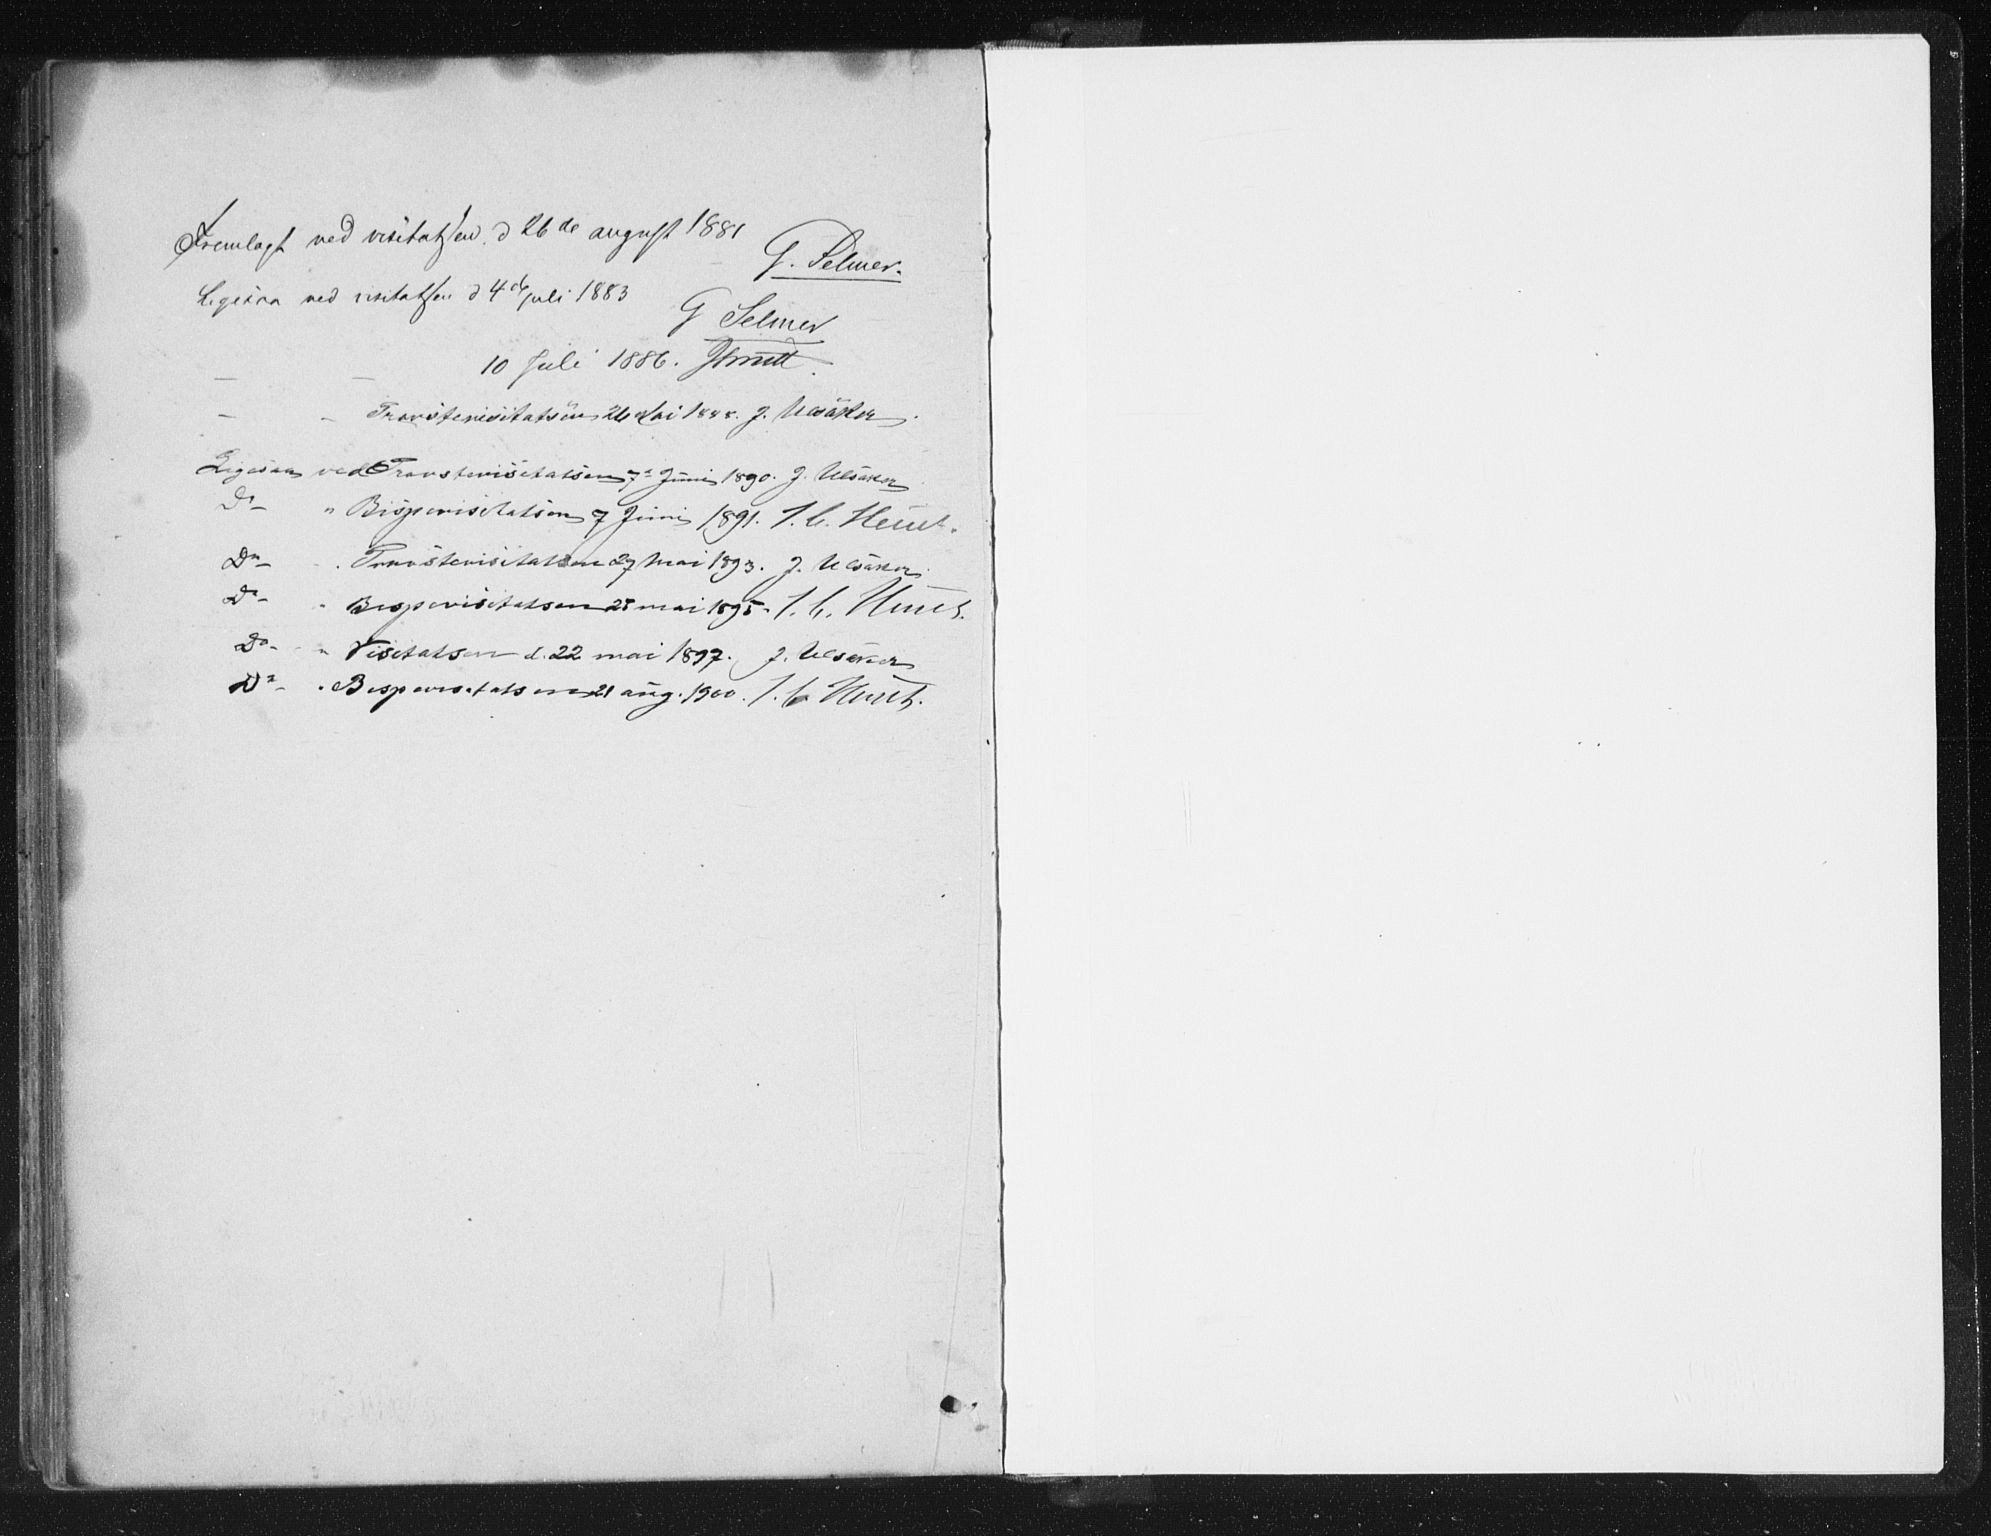 Fremlagt ved visitatsen d 26de august 1881
G. Selmer.
Ligesaa ved visitatsen d 4de juli 1883
G Selmer
— — 10 Juli 1886.
— — Provstevisitatsen 26 Mai 1888. J. Ulsaker.
Ligesaa ved Provstevisitatsen 7de Juni 1890. J. Ulsaker
Do — " Bispevisitatsen 7 Juni 1891. J. C. Heuch.
Do — " Provstevisitatsen 27 Mai 1893. J. Ulsaker.
Do — " Bispevisitatsen 28 mai 1895. J. C. Heuch.
Do — " Visitatsen d. 22 mai 1897. J. Ulsaker
Do — " Bispevisitatsen 21 aug. 1900. J. C. Heuch.